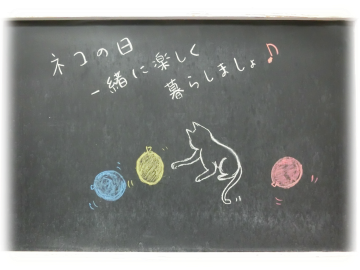 ネコの日
一緒に楽しく
暮らしましょ♪